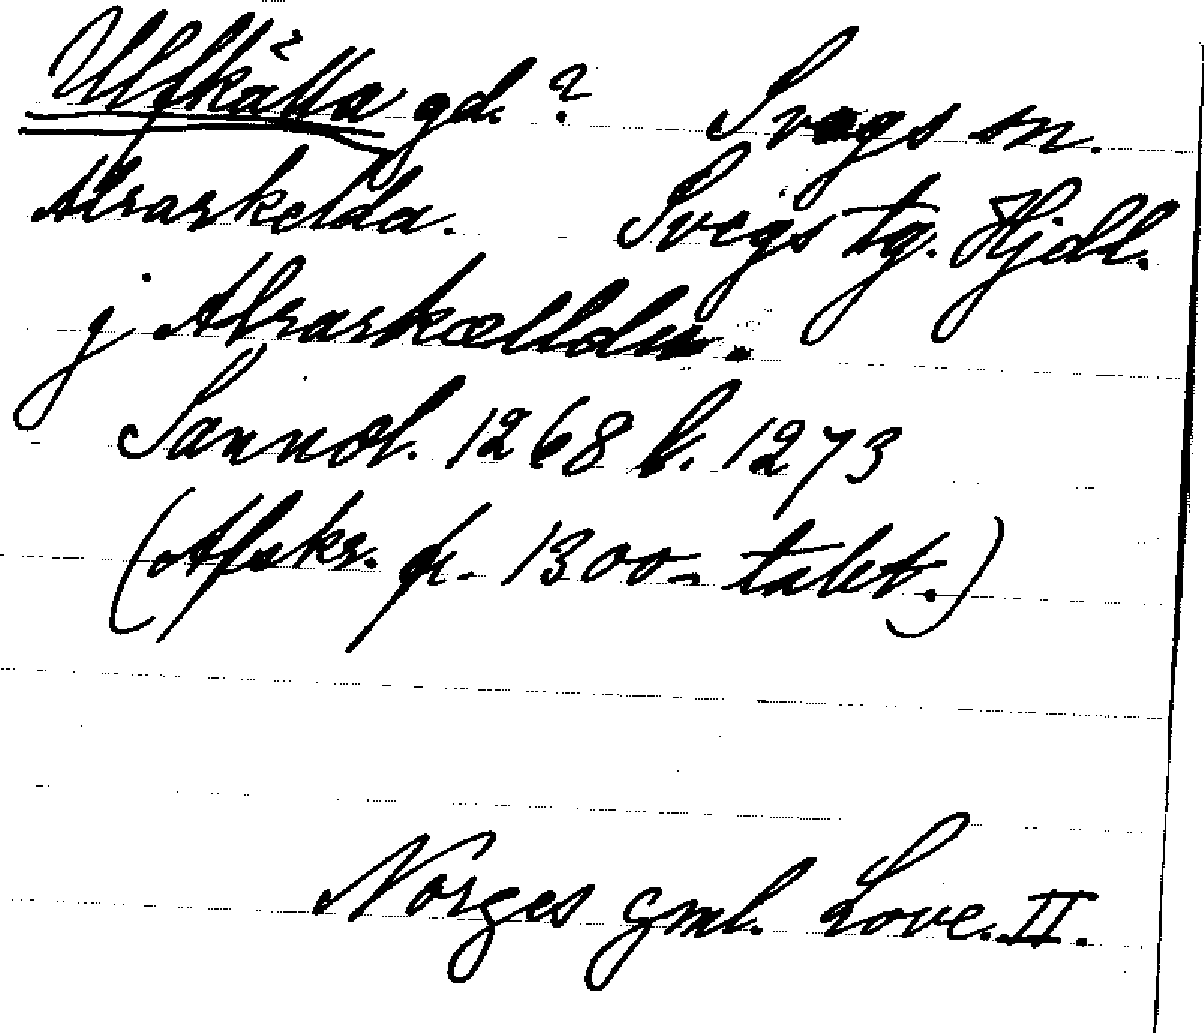 Ulfkälla gd. ? Svegs sn.
Alrarkelda. Svegs tg. Hjdl.
j Alrarkælldu.
Sannol. 1268 l. 1273
(Afskr. fr. 1300-talet.)
Norges gml. Love. II.